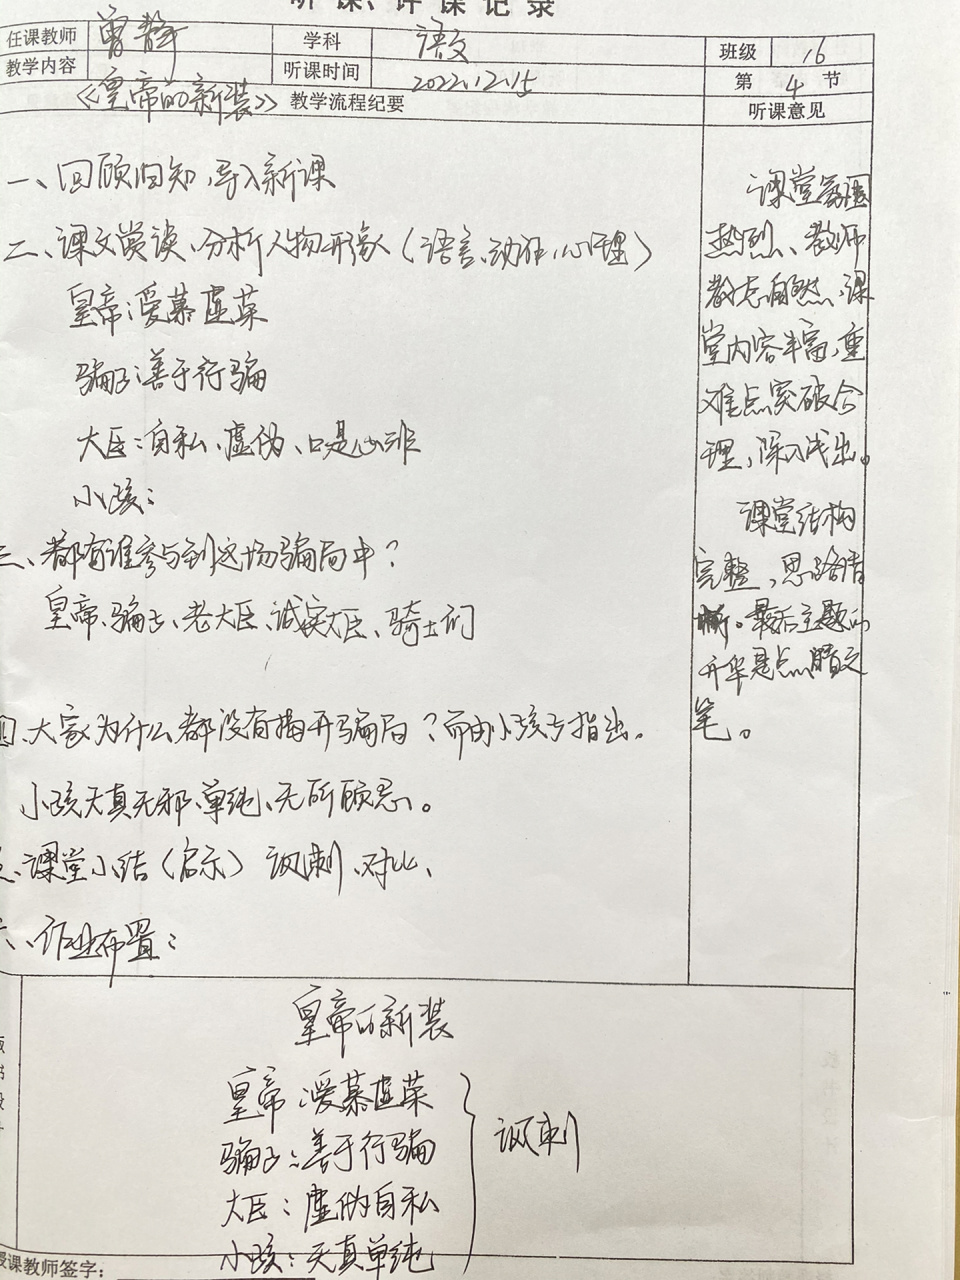 听课、评课记录
任课教师 曾静 学科 语文 班级 16
教学内容 听课时间 2022.12.15 第 4 节
《皇帝的新装》 教学流程纪要 听课意见
一、回顾旧知,导入新课
二、课文赏读、分析人物形象(语言、动作、心理)
皇帝:爱慕虚荣
骗子:善于行骗
大臣:自私、虚伪、口是心非
小孩:
三、都有谁参与到这场骗局中?
皇帝、骗子、老大臣、诚实大臣、骑士们
四、大家为什么都没有揭开骗局?而由小孩子指出。
小孩天真无邪、单纯、无所顾忌。
五、课堂小结(启示) 讽刺、对比、
六、作业布置:
课堂氛围
热烈、教师
教态自然,课
堂内容丰富,重
难点突破合
理,深入浅出。
课堂结构
完整,思路清
晰。最后主题的
升华是点睛之
笔。
皇帝的新装
皇帝:爱慕虚荣
骗子:善于行骗
大臣:虚伪自私
小孩:天真单纯
讽刺
授课教师签字: